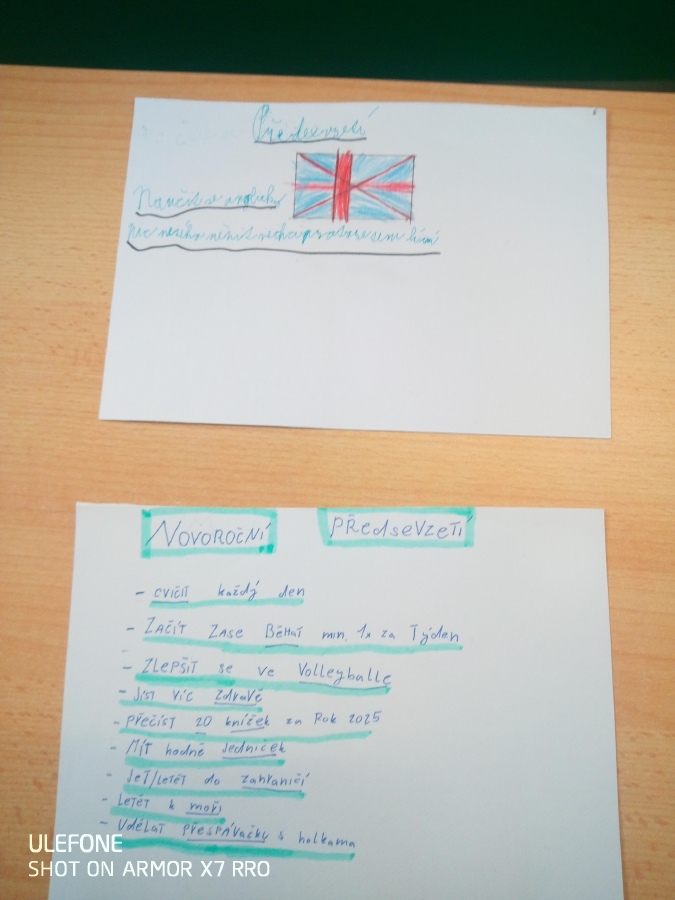 Předsevzetí
Naučit se anglicky
NOVOROČNÍ PŘEdsEVZETÍ
- CVIČIT každý den
- ZAČÍT ZASE BĚHAT min. 1x za Týden
- ZLEPŠIT se ve Volleyballe
- JÍST VÍC ZdRAVĚ
- PŘEČÍST 20 knížek za Rok 2025
- MÍT hodně JEdniČEk
- JET/LETĚT do zahraničí
- LETĚT k moři
- Vdělat PŘESPÁVAČky s holkama
ULEFONE
SHOT ON ARMOR X7 RRO